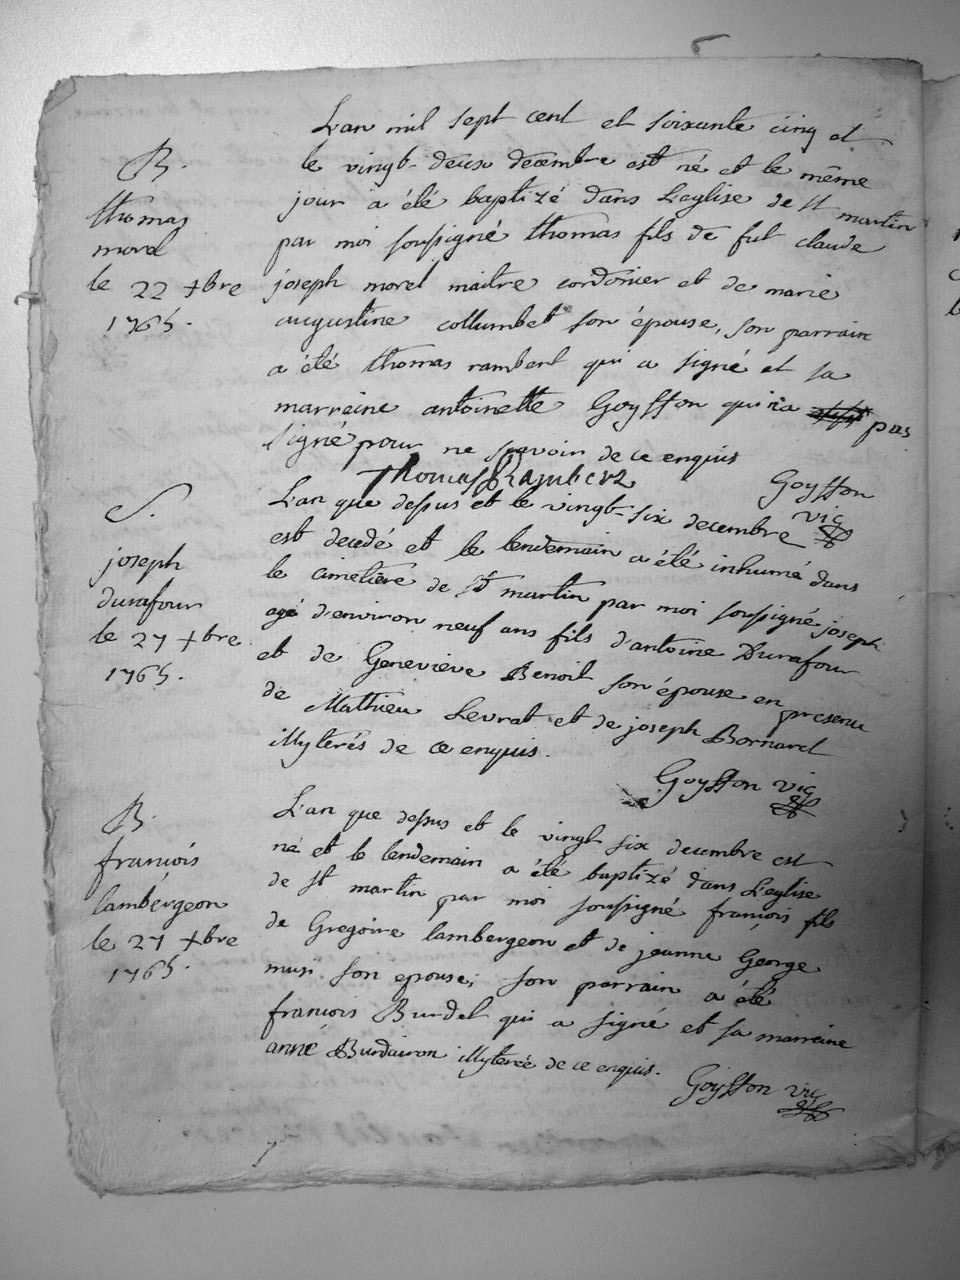 B.
thomas
morel
le 22 xbre
1765.
L'an mil sept cent et soixante cinq et
le vingt-deux decembre est né et le même
jour a été baptizé dans L'eglise de St martin
par moi soussigné thomas fils de fut claude
joseph morel maitre cordonier et de marie
augustine collumbet son épouse, son parrain
a été thomas rambert qui a signé et sa
marreine antoinette Goysson qui n'a pas
signé pour ne savoir de ce enquis
Thomas Rambert
Goysson
vic
S.
joseph
durafour
le 27 xbre
1765.
L'an que dessus et le vingt-six decembre
est decedé et le lendemain a été inhumé dans
le cimetière de St martin par moi soussigné joseph
agé d'environ neuf ans fils d'antoine Durafour
et de Geneviève Benoit son épouse en presence
de Mathieu Levrat et de joseph Bornard
illyterés de ce enquis.
Goysson vic
B.
francois
lambergeon
le 27 xbre
1765.
L'an que dessus et le vingt six decembre est
né et le lendemain a été baptizé dans L'eglise
de St martin par moi soussigné francois fils
de Gregoire lambergeon et de jeanne George
musi son epouse; son parrain a été
francois Burdel qui a signé et sa marreine
anne Burdairon illyterée de ce enquis.
Goysson vic